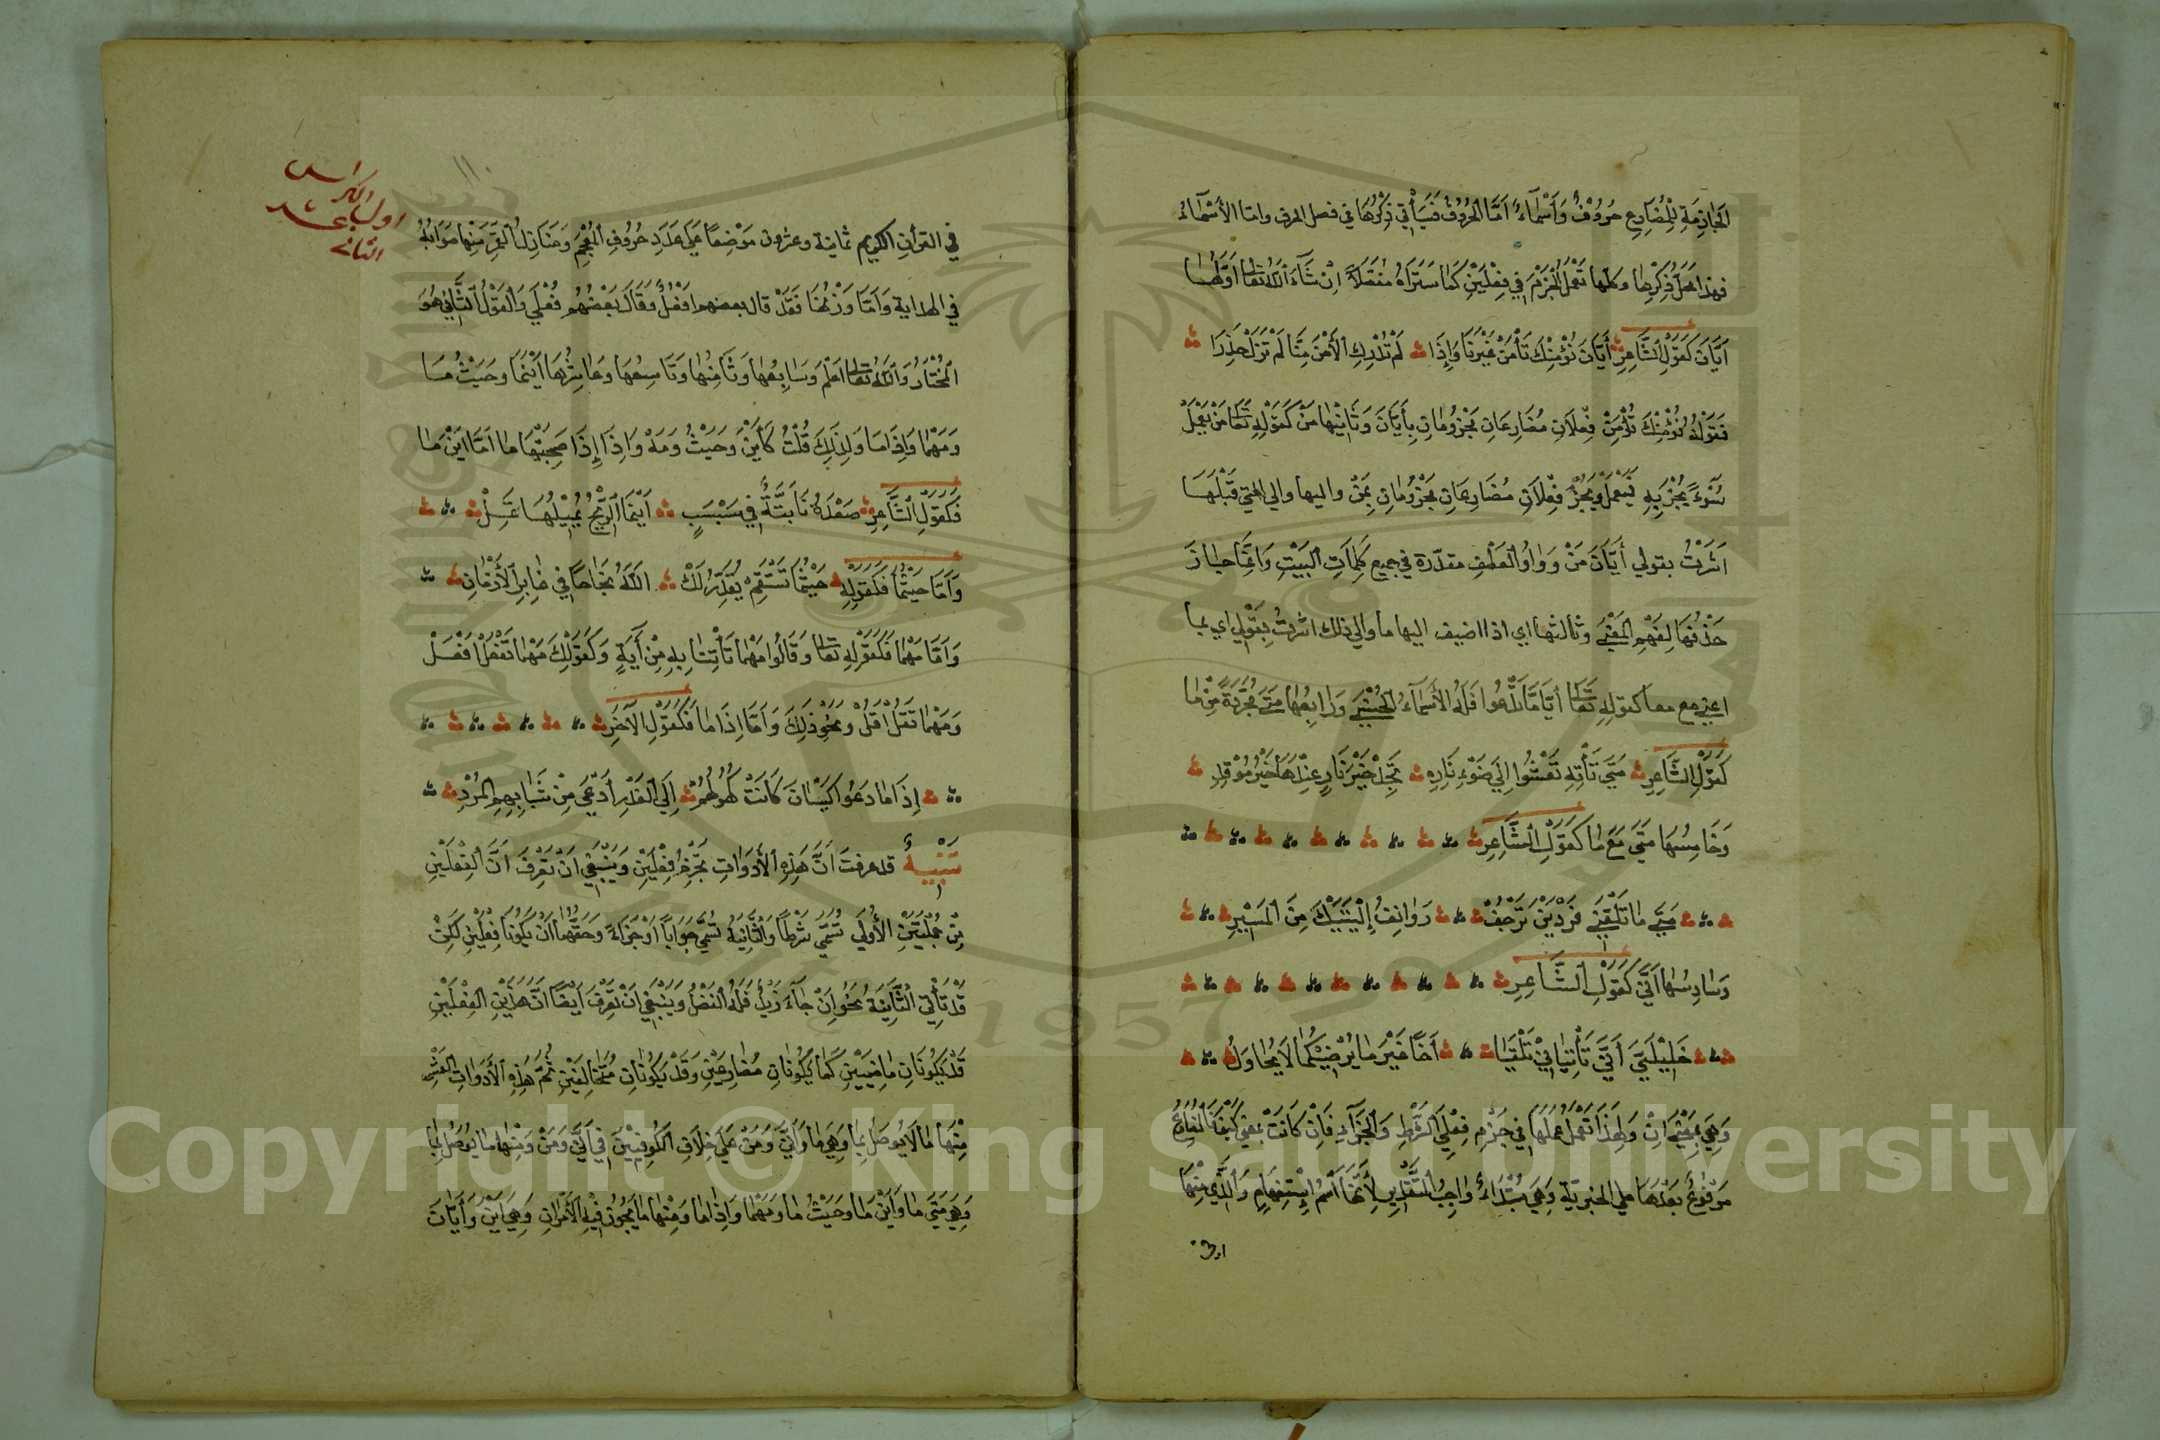 الجَازِمَةِ لِلْمُضَارِعِ حُرُوْفٌ وَأَسْمَاءٌ أَمَّا الحُرُوْفُ فَسَيَأْتِي ذِكْرُهَا فِي فصل الحرف واما الأَسْمَاءُ
فهذا مَحَلُّ ذِكْرِهَا وكلها تَعْمَلُ الجَزْمَ فِي فِعْلَيْنِ كَمَا سَتَرَاهُ مُفَصَّلاً اِنْ شَآءَ اللهُ تعالى أَوَّلُهَا
أَيَّانَ كَقَوْلِ الشَّاعِرِ أَيَّانَ نُؤْمِنْكَ تَأْمَنْ غَيْرَنَا وَإِذَا لَمْ تُدْرِكِ الأَمْنَ مِنَّا لَمْ تَزَلْ حَذِرَا
فَقَوْلُهُ نُؤْمِنْكَ تَأْمَنْ فِعْلَانِ مُضَارِعَانِ مَجْزُومَانِ بِأَيَّانَ وَثَانِيْهَا مَنْ كَقَوْلِهِ تَعَالَى مَنْ يَعْمَلْ
سُوْءً يُجْزَ بِهِ فَيَعْمَلْ وَيُجْزَ فِعْلَانِ مُضَارِعَانِ مَجْزُومَانِ بِمَنْ واليها والي التي قَبْلَهَا
اَشَرْتُ بقولي أَيَّانَ مَنْ وَوَاوُ العَطْفِ مقدّرة في جميع كَلِمَاتِ البَيْتِ وَاِنَّمَا جَازَ
حَذْفُهَا لِفَهْمِ المَعْنَى وثالثها اي اذا اضيف اليها ما والي ذلك اشرت بِقَوْلِي اي بما
اعني مع ما كقولِهِ تَعَالَى أَيَّامَّا تَدْعُوا فَلَهُ الأَسْمَآءُ الحُسْنَى وَرَابِعُهَا مَتَى مُجَرَّدَةً مِنْ مَا
كَقَوْلِ الشَّاعِرِ مَتَى تَأْتِهِ تَعْشُوا إِلَى ضَوْءِ نَارِهِ تَجِدْ خَيْرَ نَارٍ عِنْدَهَا خَيْرُ مُوْقِدِ
وَخَامِسُهَا مَتَى مَعَ مَا كَقَوْلِ الشَّاعِرِ
مَتَى مَا تَلْقَنِي فَرْدَيْنِ تَرْجُفْ رَوَانِفُ إِلْيَتَيْكَ مِنَ المَسِيْرِ
وَسَادِسُهَا أَنَّى كَقَوْلِ الشَّاعِرِ
خَلِيْلَيَّ أَنَّى تَأْتِيَانِيْ تَلْقَيَا أَخًا غَيْرَ مَا يُرْضِيْكُمَا لَا يُحَاوِلُ
وَهِيَ بِمَعْنَى اِنْ وَلِهَذَا تَعْمَلُ عَمَلَهَا فِي جَزْمِ فِعْلَيِ الشَّرْطِ وَالجَزَآءِ فَإِنْ كَانَتْ بمعنى كَيْفَ فَالمُضَارِعُ
مَرْفُوْعٌ بَعْدَهَا على الخبريّة وَهِيَ مُبْتَدَاءٌ وَاجِبُ التَّقْدِيْرِ لِأَنَّهَا اَسْمُ اِسْتِفْهَامٍ وَالَّذِي مِنْهَا
الكراس
اول
الثاني
١١
فِي القرآنِ الكريم ثمانية وعشرون مَوْضِعًا عَلَى عَدَدِ حُرُوْفِ المُعْجَمِ
في الهداية وَأَمَّا وَزْنُهَا فَقَدْ قال بعضهم اَفْعَلُ وَقَالَ بَعْضُهُم فَعْلَى وَالقَوْلُ الثَّانِي هُوَ
المُخْتَارُ وَاللهُ تعالى اعْلَمُ وَسَابِعُهَا وَثَامِنُهَا وَتَاسِعُهَا وَعَاشِرُهَا أَيْنَمَا وَحَيْثُ مَا
وَمَهْمَا وَإِذَا مَا وَلِذَلِكَ قُلْتُ كَأَيْنَ وَحَيْثُ وَمَهْ وَاِذَا إِذَا صَحِبَتْهَا مَا اَمَّا اَيْنَ مَا
فَكَقَوْلِ الشَّاعِرِ صَعْدَةٌ نَابِتَةٌ فِي سَبْسَبٍ أَيْنَمَا الرِّيْحُ تُمَيِّلْهَا تَمِلْ
وَأَمَّا حَيْثُمَا فَكَقَوْلِهِ حَيْثُمَا تَسْتَقِمْ يُقَدِّرْ لَكَ اللهُ نَجَاحًا فِي غَابِرِ الأَزْمَانِ
وَأَمَّا مَهْمَا فَكَقَوْلِهِ تعالى وَقَالُوا مَهْمَا تَأْتِنَا بِهِ مِنْ آيَةٍ وَكَقَوْلِكَ مَهْمَا تَفْعَلْ افْعَلْ
وَمَهْمَا تَقُلْ اَقُلْ وَنَحْوِ ذَلِكَ وَأَمَّا إِذَا مَا فَكَقَوْلِ الآخَرِ
إِذَا مَا دَعَوْا كَيْسَانَ كَانَتْ كُهُولُهُمْ إِلَى الغَدْرِ أَدْعَى مِنْ شَبَابِهِمِ المُرْدِ
تَنْبِيْهٌ قد عرفت اَنَّ هَذِهِ الأَدَوَاتِ تَجْزِمُ فِعْلَيْنِ وَيَنْبَغِي اَنْ تَعْرِفَ اَنَّ الفِعْلَيْنِ
مِنْ جُمْلَتَيْنِ الأُوْلَى تُسَمَّى شَرْطًا وَالثَّانِيَةُ تُسَمَّى جَوَابًا اَوْ جَزَاءً وَحَقُّهُمَا اَنْ يَكُوْنَا فِعْلَيْنِ لَكِنْ
قَدْ تَأْتِي الثَّانِيَةُ نَحْوُ اِنْ جَآءَ زَيْدٌ فَلَهُ الفَضْلُ وَيَنْبَغِي اَنْ تَعْرِفَ اَيْضًا اَنَّ هَذَيْنِ الفِعْلَيْنِ
قَدْ يَكُوْنَانِ مَاضِيَيْنِ كَمَا يَكُوْنَانِ مُضَارِعَيْنِ وَقَدْ يَكُوْنَانِ مُتَخَالِفَيْنِ ثُمَّ هَذِهِ الأَدَوَاتِ العَشْرِ
مِنْهَا مَا لَا يُوصَلُ بِمَا وَهِيَ مَا وَأَنَّى وَمَنْ عَلَى خِلَافِ الكُوفِيِّيْنَ فِي أَنَّى وَمَنْ وَمِنْهَا مَا يُوْصَلُ بِمَا
وَهِيَ مَتَى مَا وَأَيْنَ مَا وَحَيْثُ مَا وَمَهْمَا وَإِذَا مَا وَمِنْهَا مَا يَجُوزُ فِيْهِ الأَمْرَانِ وَهِيَ أَيْنَ وَأَيَّانَ
1957
Copyright © King Saud University